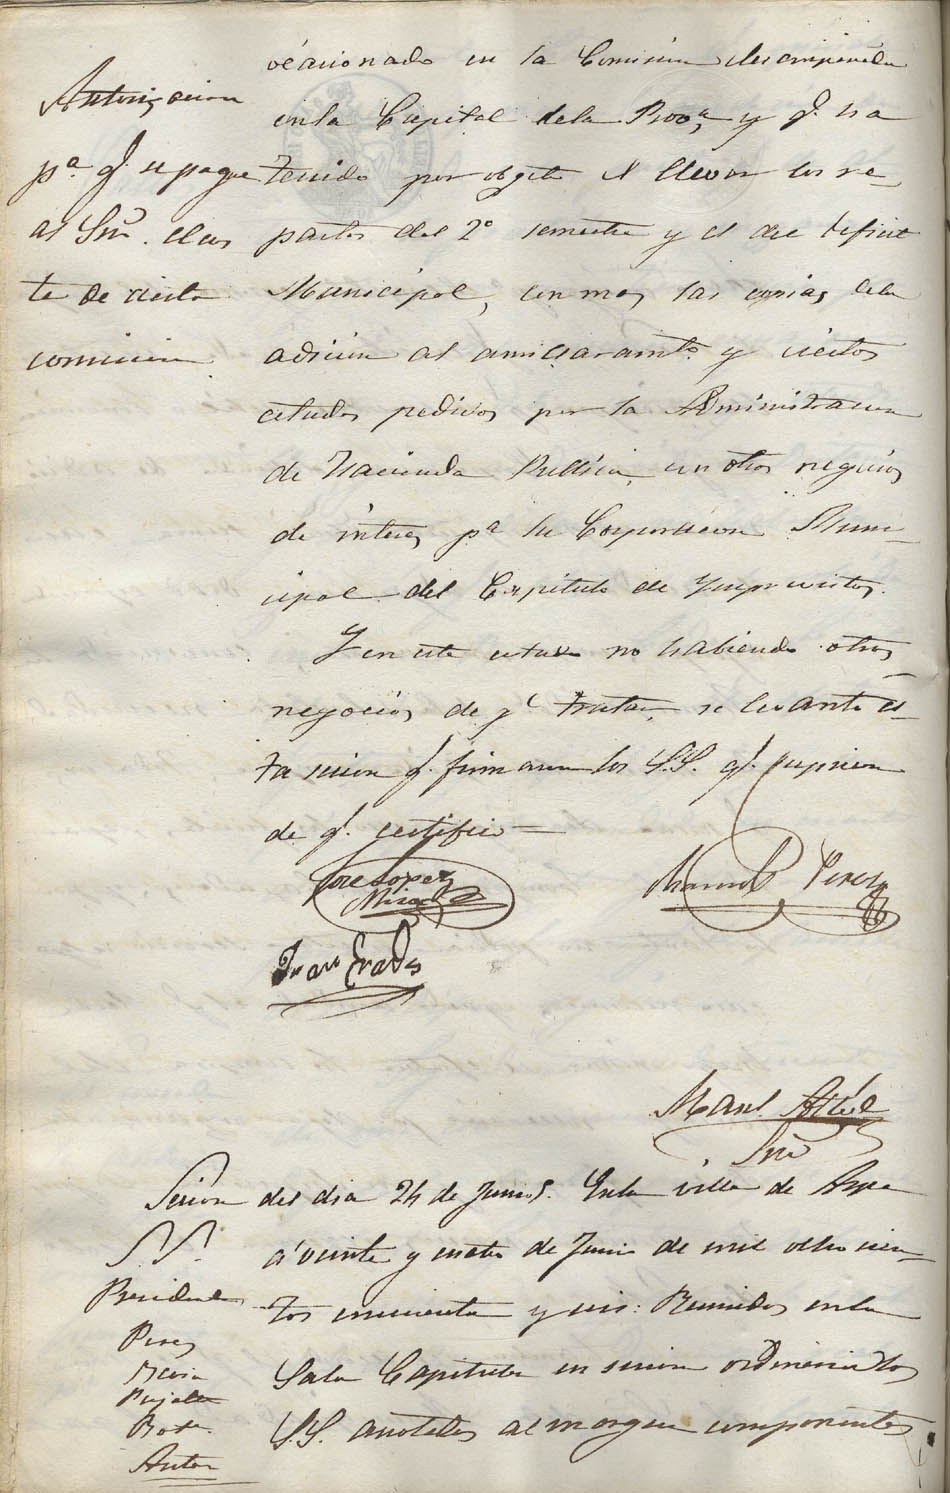 Autorizacion
pª q.e se pague
al Srio. el cos
te de cierta
comision
ocacionado en la Comision desempeñada
en la Capital de la Proª, y q.e ha
tenido por objeto el llevar los re-
partos del 2º semestre y el del deficit
Municipal, con mas las copias dela
adicion al amillaramto. y ciertos
estados pedidos por la Administracion
de Hacienda Publica, con otros negocios
de interes pª la Corporacion Muni-
cipal del Capitulo de Ymprevistos.
Y en este estado no habiendo otros
negocios de q.e tratar, se levanto es-
ta sesion q.e firmaron los S.S. q.e supieron
de q.e certifico
Jose Lopez
Manuel Perez
Juan
Manl.
Srio
Sesion del dia 24 de Junio. En la villa de Aspe
á veinte y cuatro de Junio de mil ocho cien-
tos cincuenta y seis: Reunidos en la
Sala Capitular en sesion ordinaria los
S.S. anotados al margen componentes
S.S.
Presidente
Perez
Pujalte
Bota
Anton